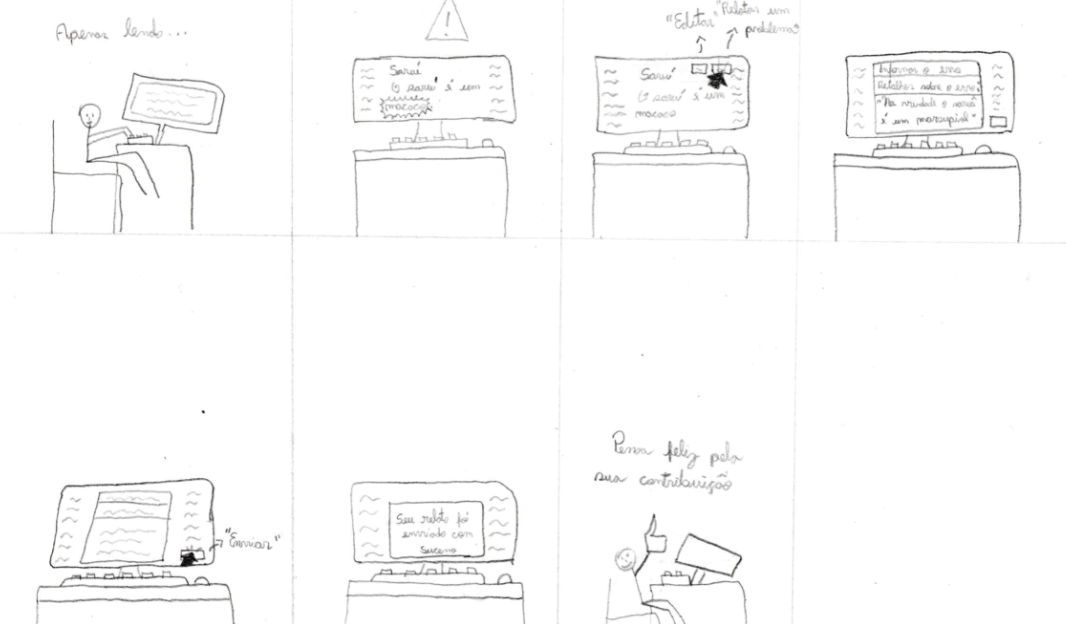 Apenas lendo...
!
Saruê
O saruê é um
macaco
"Editar"
"Relatar um
problema"
Saruê
O saruê é um
macaco
Informos o erro
Detalhes sobre o erro:
"Na verdade o saruê
é um marsupial"
"Enviar"
Seu relato foi
enviado com
sucesso
Pessoa feliz pela
sua contribuição